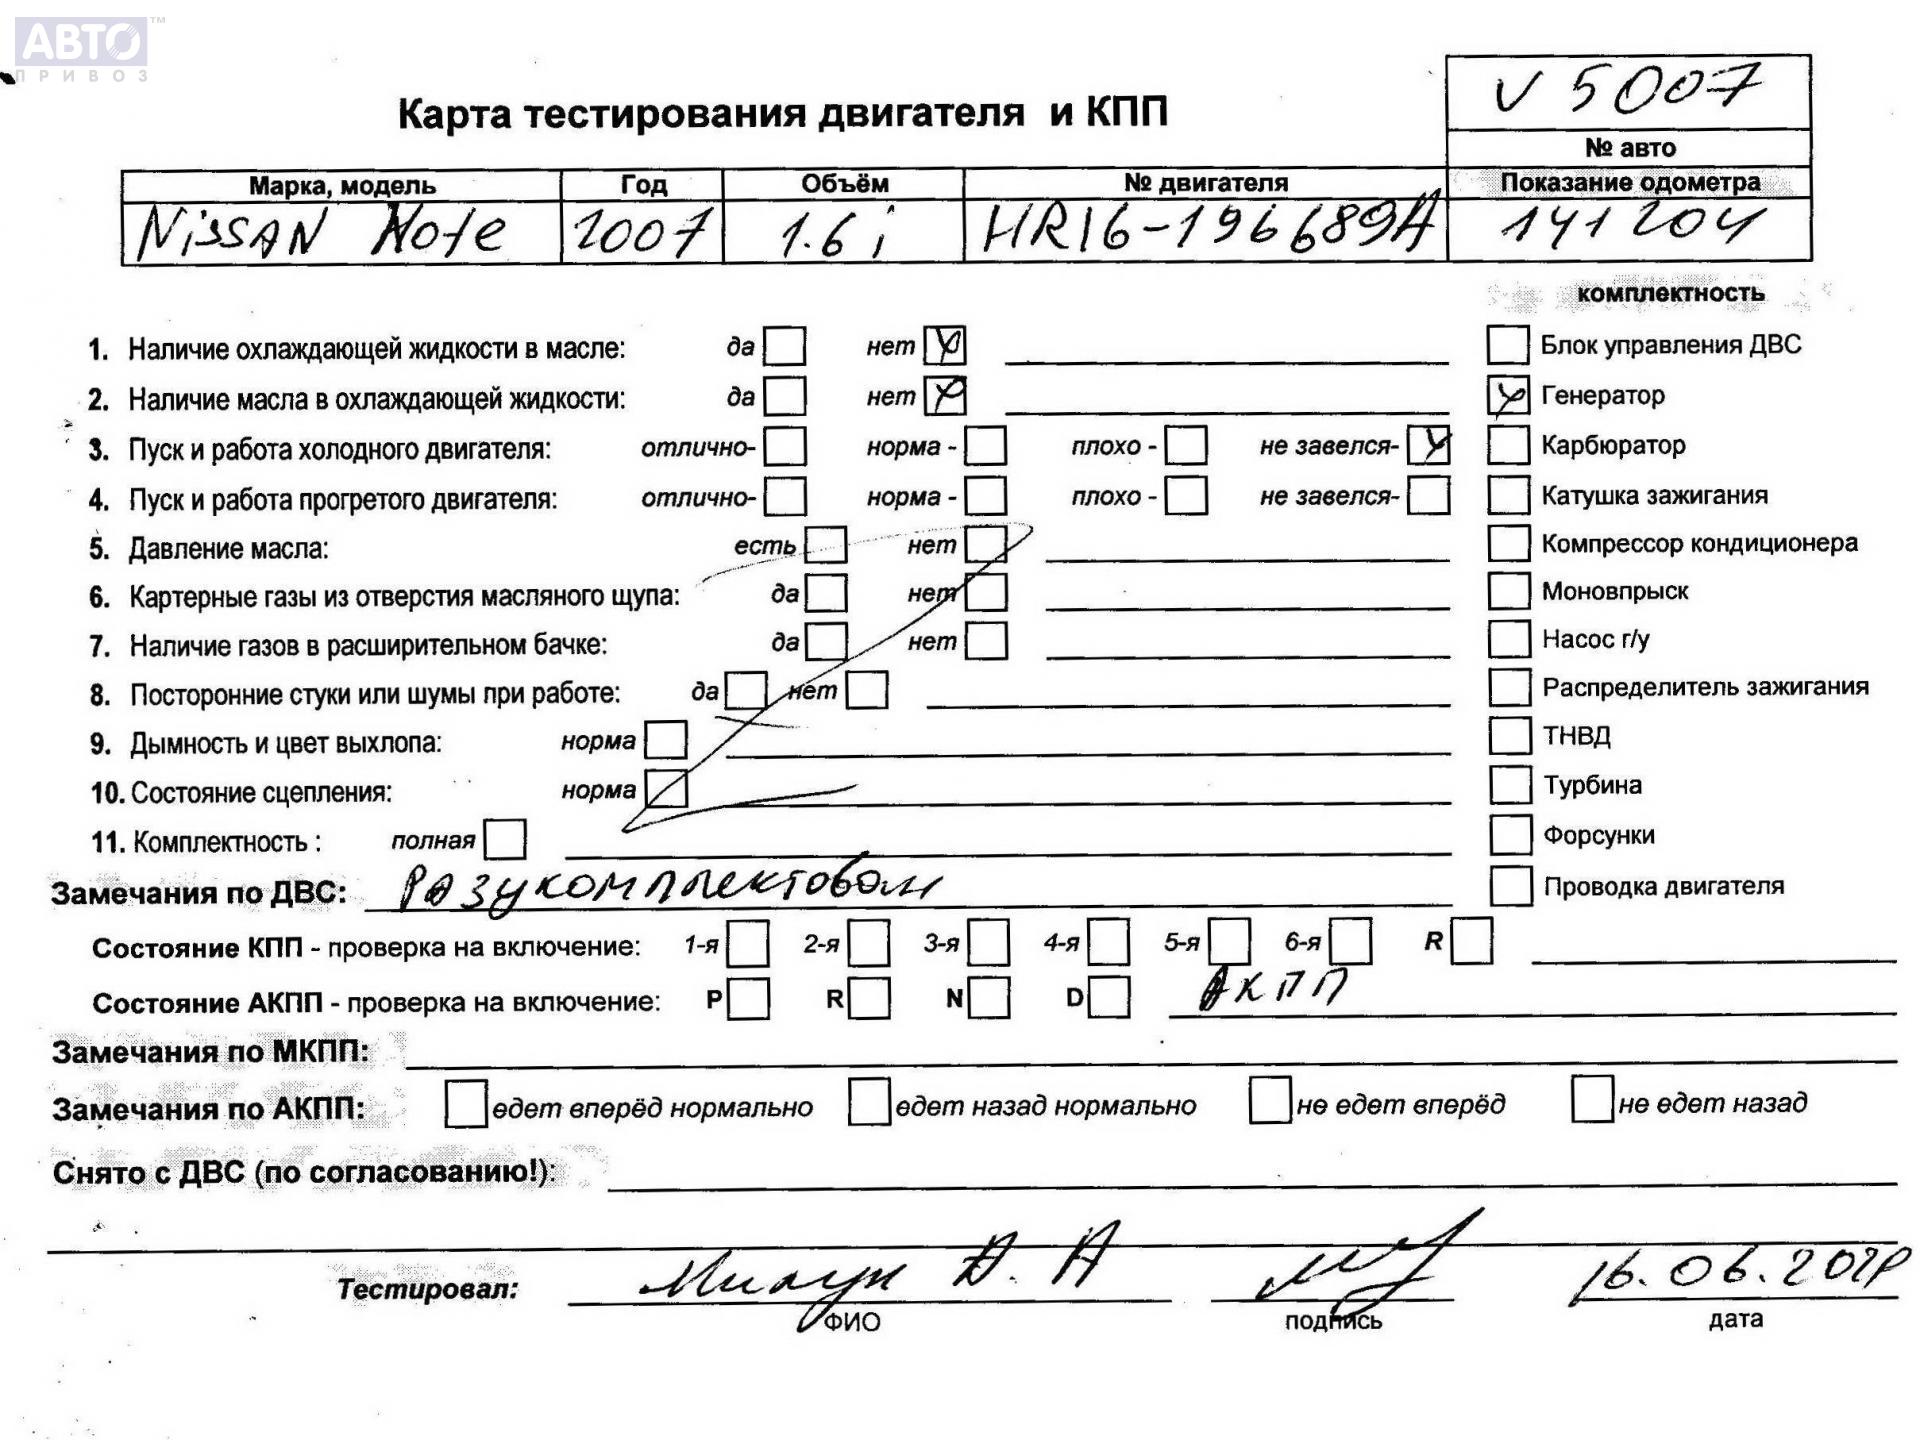 АВТО™
ПРИВОЗ
V 5007
Карта тестирования двигателя и КПП
№ авто
Марка, модель Год Объём № двигателя Показание одометра
Nissan Note 2007 1.6 i HR16-196689A 141204
комплектность
1. Наличие охлаждающей жидкости в масле: да нет Блок управления ДВС
2. Наличие масла в охлаждающей жидкости: да нет Генератор
3. Пуск и работа холодного двигателя: отлично- норма - плохо - не завелся- Карбюратор
4. Пуск и работа прогретого двигателя: отлично- норма - плохо - не завелся- Катушка зажигания
5. Давление масла: есть нет Компрессор кондиционера
6. Картерные газы из отверстия масляного щупа: да нет Моновпрыск
7. Наличие газов в расширительном бачке: да нет Насос г/у
8. Посторонние стуки или шумы при работе: да нет Распределитель зажигания
9. Дымность и цвет выхлопа: норма ТНВД
10. Состояние сцепления: норма Турбина
11. Комплектность : полная Форсунки
Замечания по ДВС: Разукомплектован Проводка двигателя
Состояние КПП - проверка на включение: 1-я 2-я 3-я 4-я 5-я 6-я R
Состояние АКПП - проверка на включение: P R N D АКПП
Замечания по МКПП:
Замечания по АКПП: едет вперёд нормально едет назад нормально не едет вперёд не едет назад
Снято с ДВС (по согласованию!):
Тестировал: Д. А
ФИО подпись дата